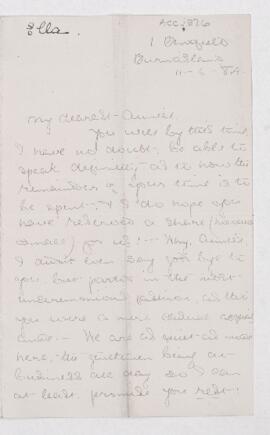 Ella.
ACC. 876
Burntisland
My dearest Annie,
You will by this time,
I have no doubt, be able to
speak definitely, as to how the
remainder of your time is to
be spent, & I do hope you
have reserved a share
for us! Why, Annie,
I didn't even say good bye to
you, but parted in the most
unceremonious fashion, as tho'
you were a mere casual acquaint
ance. We are as quiet as mice
here, the gentlemen being at
business all day so I can
at least promise you rest.